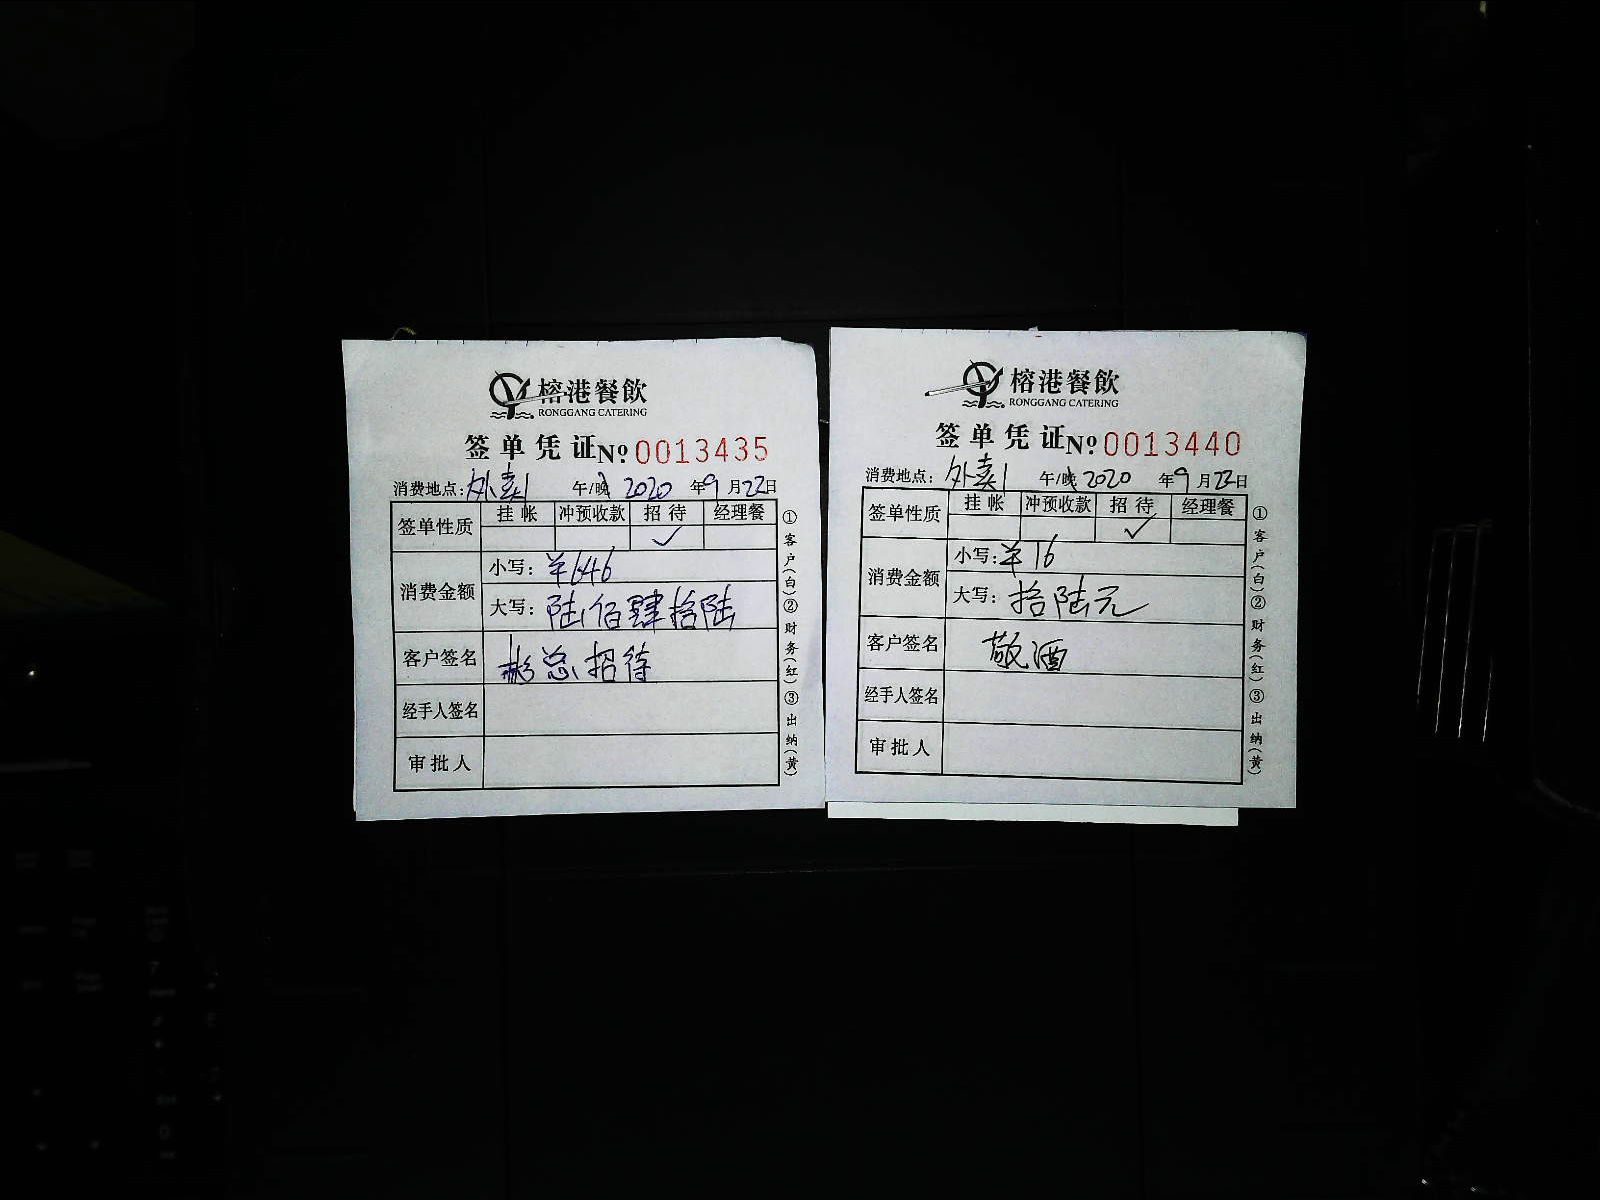 榕港餐飲
RONGGANG CATERING
签单凭证 №0013435
消费地点:外卖1 午/晚 2020 年9月22日
签单性质 挂帐 冲预收款 招待 经理餐
✓
消费金额 小写:¥646
大写:陆佰肆拾陆
客户签名 彬总招待
经手人签名
审批人
①客户(白)②财务(红)③出纳(黄)
榕港餐飲
RONGGANG CATERING
签单凭证 №0013440
消费地点:外卖1 午/晚 2020 年9月22日
签单性质 挂帐 冲预收款 招待 经理餐
✓
消费金额 小写:¥16
大写:拾陆元
客户签名 敬酒
经手人签名
审批人
①客户(白)②财务(红)③出纳(黄)